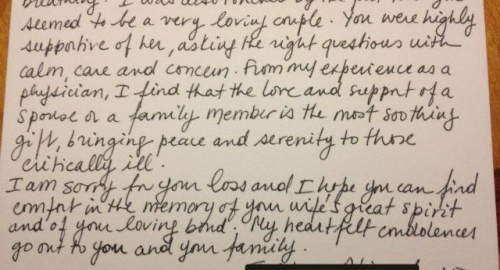 breathing. I was also touched by the
seemed to be a very loving couple. You were highly
supportive of her, asking the right questions with
calm, care and concern. From my experience as a
physician, I find that the love and support of a
spouse or a family member is the most soothing
gift, bringing peace and serenity to those
critically ill.
I am sorry for your loss and I hope you can find
comfort in the memory of your wife's great spirit
and of your loving bond. My heartfelt condolences
go out to you and your family.